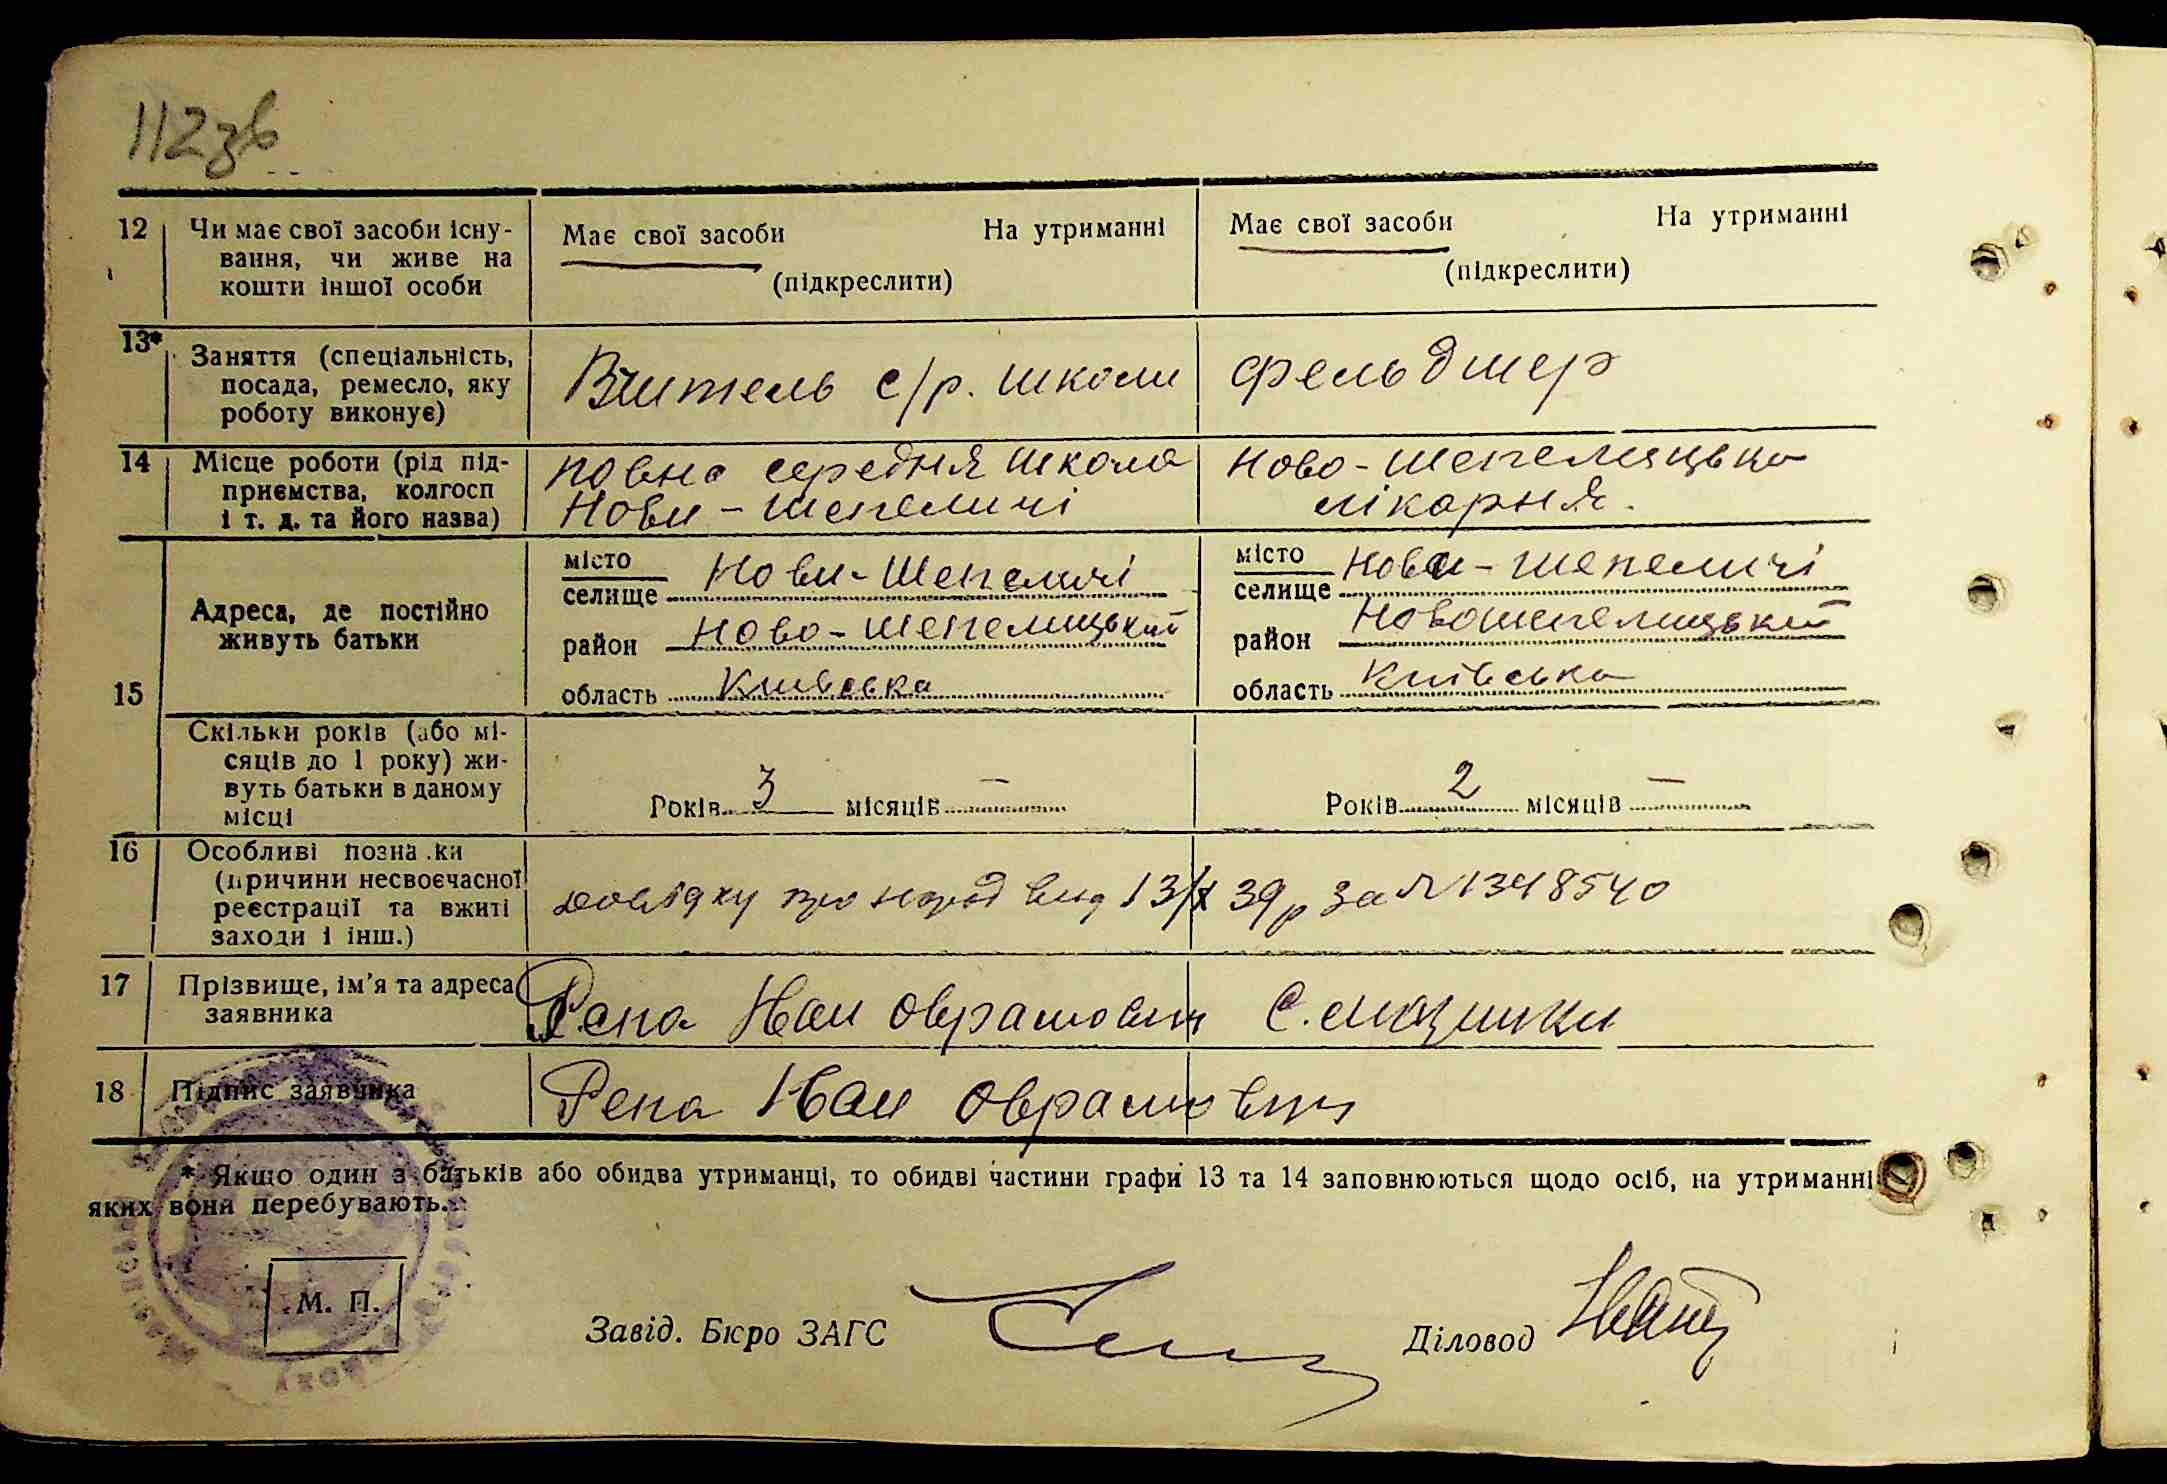 112зв
12 Чи має свої засоби існу-
вання, чи живе на
кошти іншої особи
Має свої засоби На утриманні
(підкреслити)
Має свої засоби На утриманні
(підкреслити)
13* Заняття (спеціальність,
посада, ремесло, яку
роботу виконує)
Вчитель с/р. школи
фельдшер
14 Місце роботи (рід під-
приємства, колгосп
і т. д. та його назва)
повна середня школа
Нови-Шепеличі
Ново-Шепелицька
лікарня.
15 Адреса, де постійно
живуть батьки
місто
селище Нови-Шепеличі
район Ново-Шепелицький
область Київська
місто
селище Нови-Шепеличі
район Новошепелицький
область Київська
Скільки років (або мі-
сяців до 1 року) жи-
вуть батьки в даному
місці
Років 3 місяців —
Років 2 місяців —
16 Особливі позна ки
(причини несвоєчасної
реєстрації та вжиті
заходи і інш.)
довідку про народ вид 13/X 39р за № 1348540
17 Прізвище, ім'я та адреса
заявника
Репа Иван Оврамович С.
18 Підпис заявника
Репа Иван Оврамович
* Якщо один з батьків або обидва утриманці, то обидві частини графи 13 та 14 заповнюються щодо осіб, на утриманні
яких вони перебувають.
М. П.
Завід. Бюро ЗАГС
Діловод